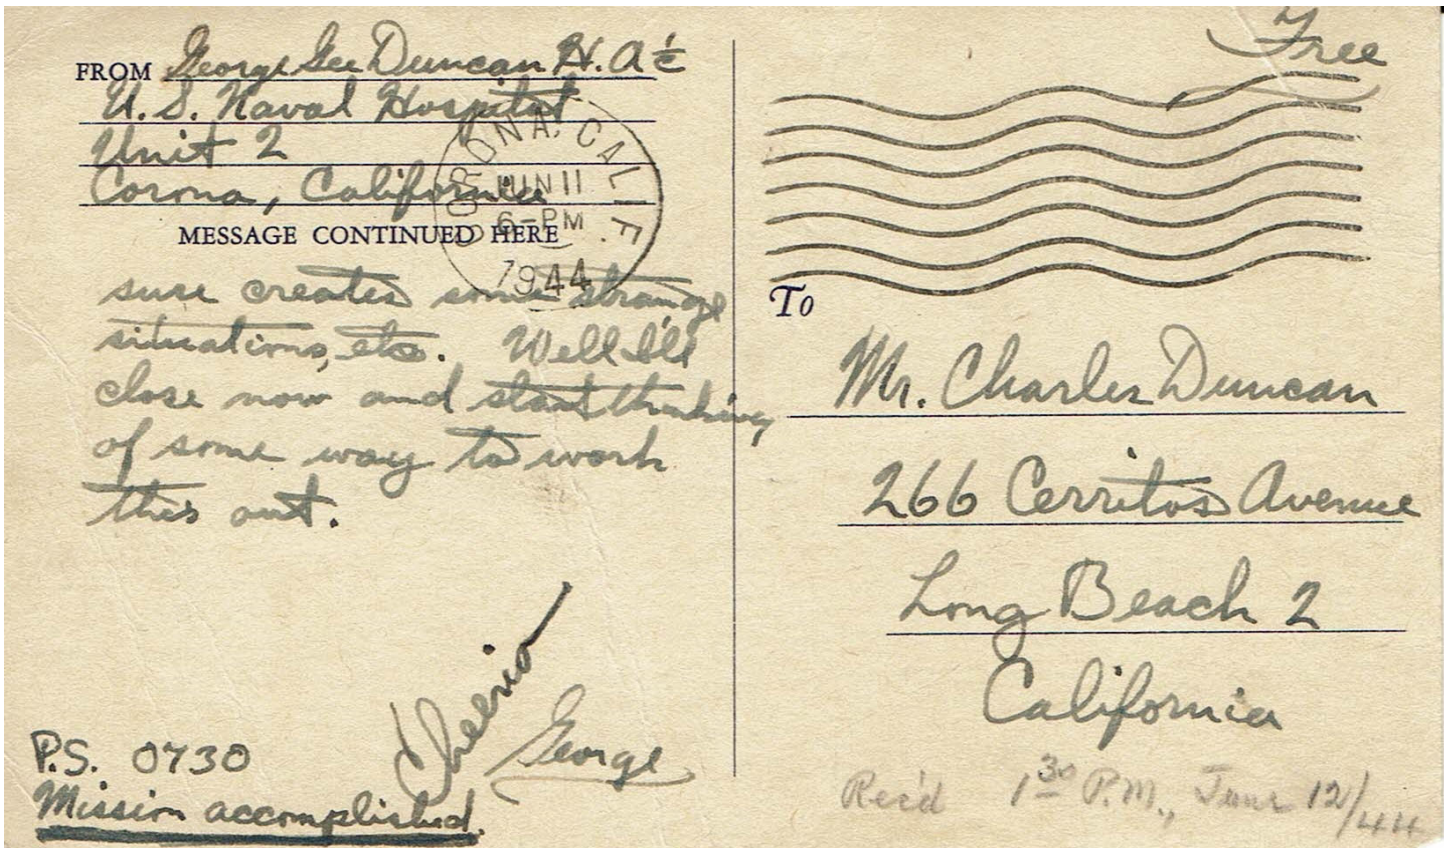 FROM George Gee Duncan H. A 1/c
U. S. Naval Hospital
Unit 2
Corona, California
MESSAGE CONTINUED HERE
sure creates some strange
situations, etc. Well I'll
close now and start thinking
of some way to work
this out.
Cheerio
George
P.S. 0730
Mission accomplished.
CORONA, CALIF.
JUN 11
6-PM
1944
Free
To
Mr. Charles Duncan
266 Cerritos Avenue
Long Beach 2
California
Rec'd 1 30 P.M., June 12/44